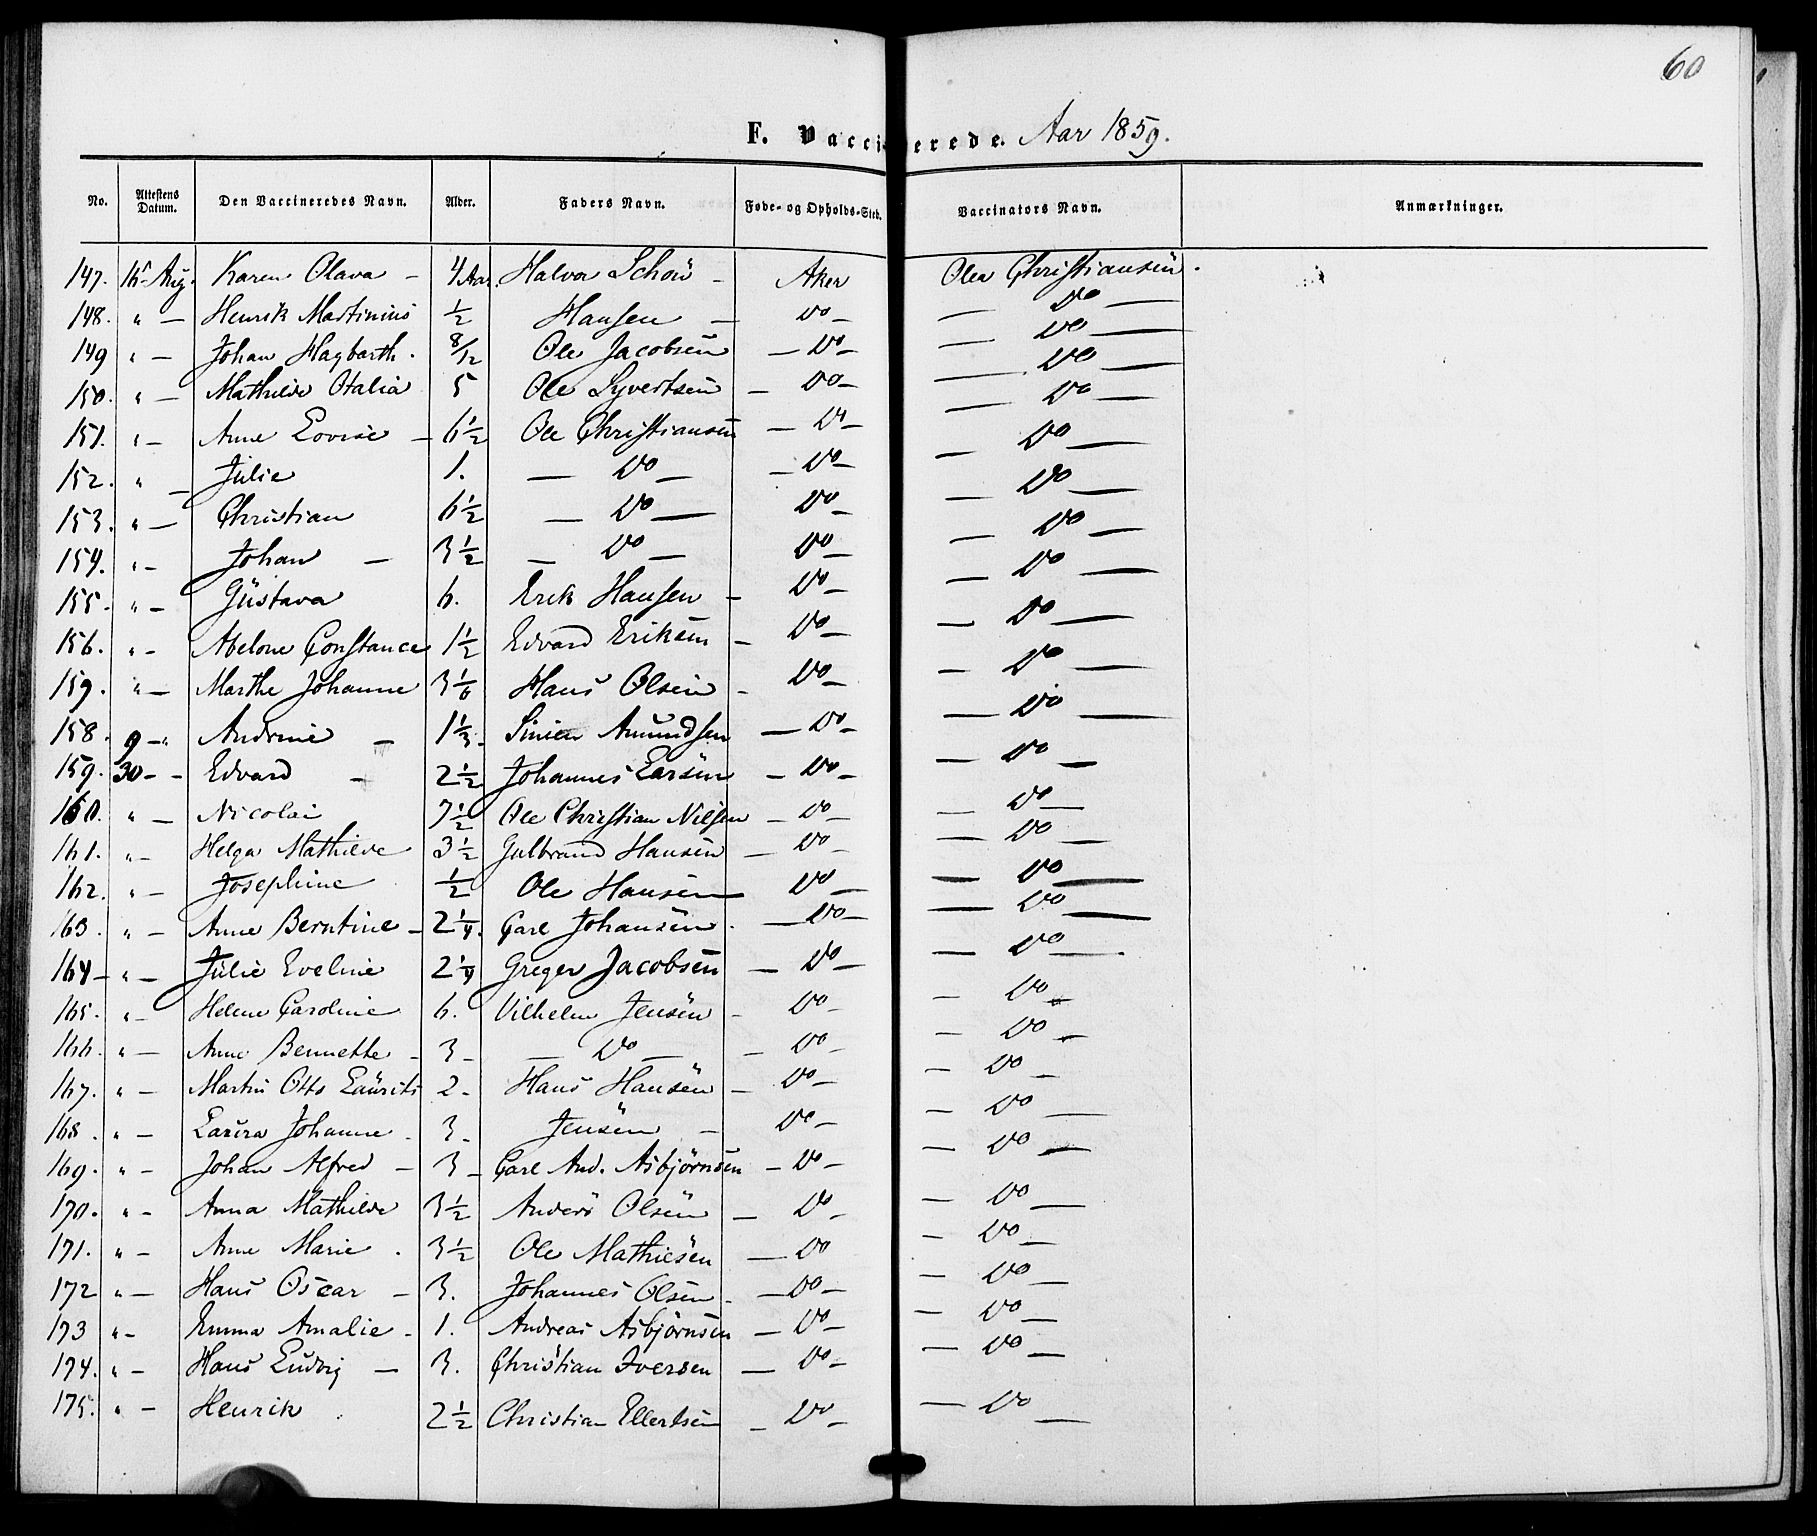 60
F. Vaccinerede. Aar 1859.
No. Attestens Datum. Den Vaccineredes Navn. Alder. Faders Navn. Føde- og Opholds-Sted. Vaccinators Navn. Anmærkninger.
147. 15 Aug. Karen Olava - 4 Aar. Halvor Schou - Aker Oler Christiansen.
148. " — Henrik Martinius ½ Hansen — Do — — Do —
149 " — Johan Hagbarth. 8/12 Ole Jacobsen — Do — — Do —
150. " — Mathilde Otalia 5 Ole Syvertsen — Do — — Do —
151. " — Anne Lovise — 6½ Ole Christiansen — Do — — Do —
152. " — Julie 1. — Do — — Do — — Do —
153. " — Christian 6½ — Do — Do — — Do —
154. " — Johan — 3½ — Do — Do — — Do —
155. " — Gustava 6. Erik Hansen — Do — — Do —
156. " — Abelone Constance 1½ Edvard Eriksen — Do — — Do —
157. " — Marthe Johanne 3 1/6 Hans Olsen — Do — — Do —
158. 9 — " Andrine — 1⅓. Amundsen — Do — — Do —
159. 30 - - Edvard — 2½ Johannes Larsen — Do — — Do —
160. " — Nicolai 7½ Ole Christian Nilsen — Do — — Do —
161. " — Helga Mathilde 3½ Gulbrand Hansen — Do — — Do —
162. " — Josephine ½ Ole Hansen — Do — — Do —
163. " — Anne Berntine — 2¼. Carl Johansen. — Do — — Do —
164 — " — Julie Eveline 2¼ Greger Jacobsen — Do — — Do —
165. " — Helene Caroline 6. Vilhelm Jensen — Do — — Do —
166. " — Anne Bennette — 3 — — Do — — Do — — Do —
167. " — Martin Otto Laurits 2 — Hans Hansen — Do — — Do —
168. " — Laura Johanne. 3 — Jensen — Do — — Do —
169. " — Johan Alfred — 3 — Carl And. Asbjørnsen — Do — — Do —
170. " — Anna Mathilde 3½ Anders Olsen — Do — — Do —
171. " — Anne Marie. 3½ Ole Mathiesen — Do — Do —
172 " — Hans Oscar — 3. Johannes Olsen — Do — — Do —
173 " — Emma Amalie — 1. Andreas Asbjørnsen — Do — — Do —
174. " — Hans Ludvig — 3. Christian Iversen — Do — — Do —
175. " — Henrik. 2½ Christian Ellertsen — Do — — Do —